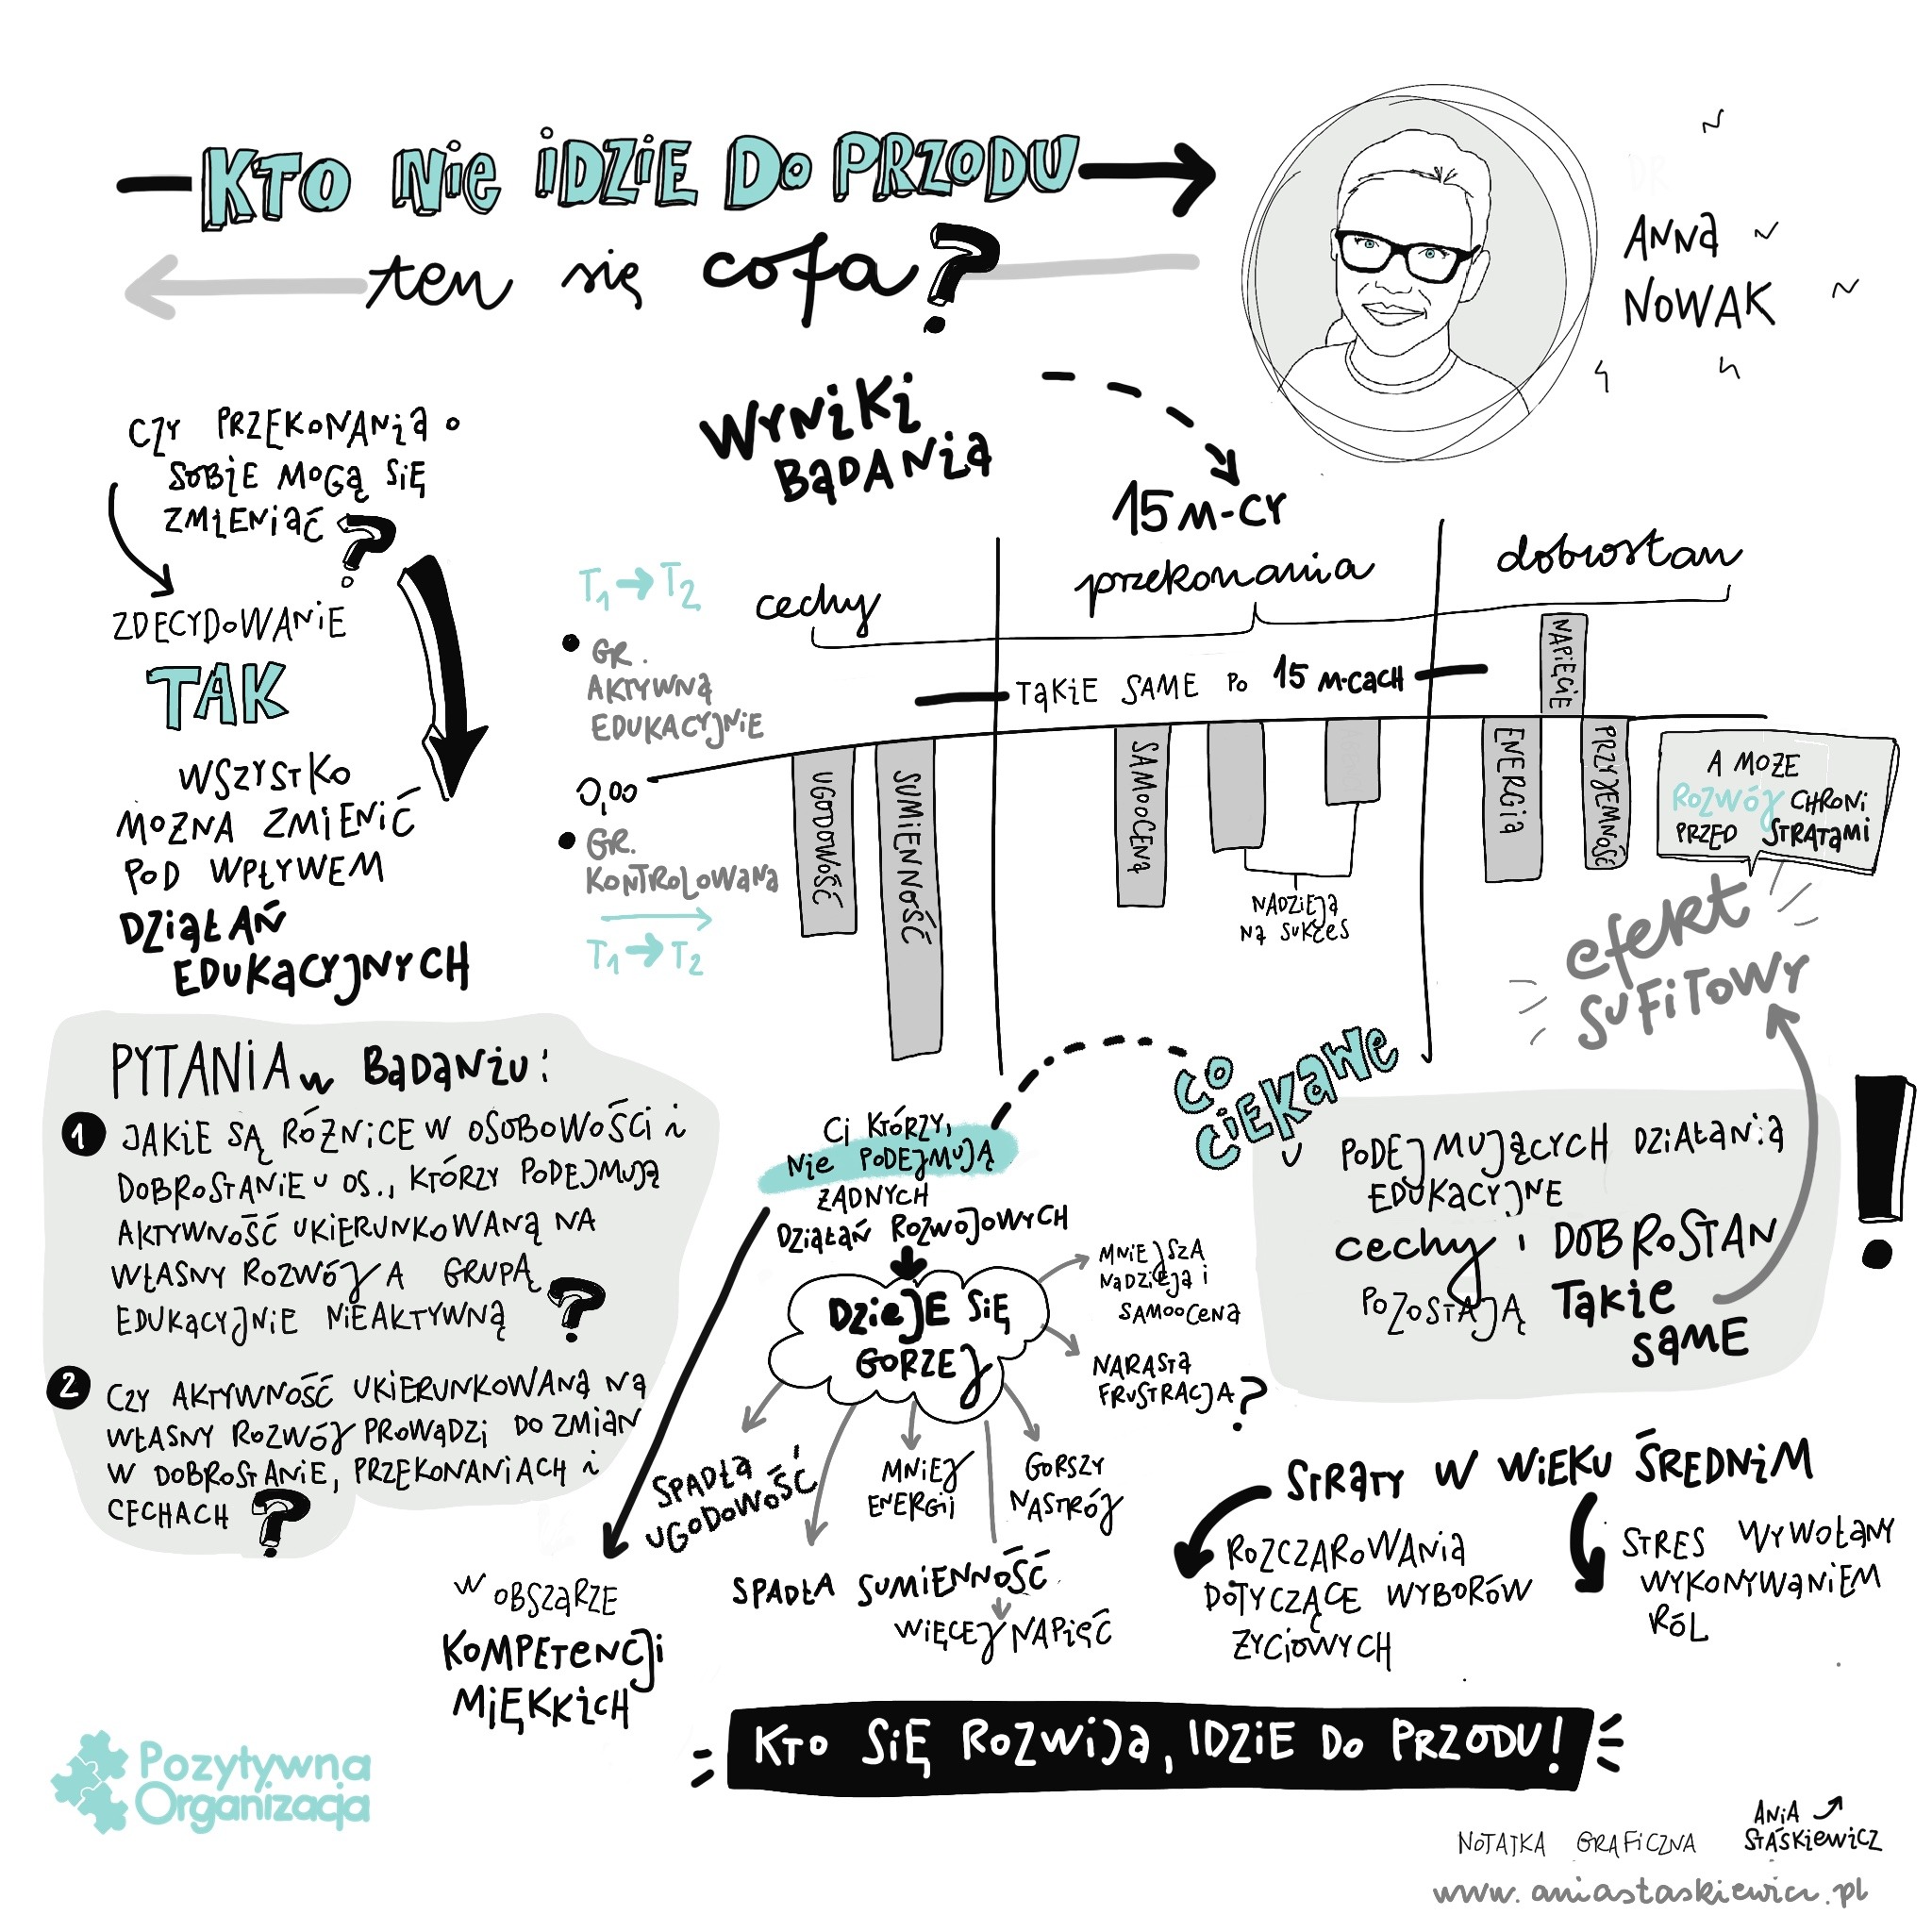 KTO NIE IDZIE DO PRZODU
ten się cofa?
ANNA
NOWAK
CZY PRZEKONANIA O
SOBIE MOGĄ SIĘ
ZMIENIAĆ?
ZDECYDOWANIE
TAK
WSZYSTKO
MOŻNA ZMIENIĆ
POD WPŁYWEM
DZIAŁAŃ
EDUKACYJNYCH
WYNIKI
BADANIA
15 M-CY
cechy
przekonania
dobrostan
T1 → T2
• GR.
AKTYWNA
EDUKACYJNIE
0,00
• GR.
KONTROLOWANA
T1 → T2
TAKIE SAME PO 15 M-CACH
UGODOWOŚĆ
SUMIENNOŚĆ
SAMOOCENA
NADZIEJA
NA SUKCES
ENERGIA
NAPIĘCIE
PRZYJEMNOŚĆ
A MOŻE
ROZWÓJ CHRONI
PRZED STRATAMI
efekt
SUFITOWY
PYTANIA w BADANIU:
1 JAKIE SĄ RÓŻNICE W OSOBOWOŚCI i
DOBROSTANIE U OS., KTÓRZY PODEJMUJĄ
AKTYWNOŚĆ UKIERUNKOWANĄ NA
WŁASNY ROZWÓJ A GRUPĄ
EDUKACYJNIE NIEAKTYWNĄ?
2 CZY AKTYWNOŚĆ UKIERUNKOWANA NA
WŁASNY ROZWÓJ PROWADZI DO ZMIAN
W DOBROSTANIE, PRZEKONANIACH i
CECHACH?
CI KTÓRZY,
NIE PODEJMUJĄ
ŻADNYCH
DZIAŁAŃ ROZWOJOWYCH
DZIEJE SIĘ
GORZEJ
MNIEJSZA
NADZIEJA i
SAMOOCENA
NARASTA
FRUSTRACJA?
SPADŁA
UGODOWOŚĆ
MNIEJ
ENERGII
GORSZY
NASTRÓJ
SPADŁA SUMIENNOŚĆ
WIĘCEJ NAPIĘĆ
W OBSZARZE
KOMPETENCJI
MIĘKKICH
CO
CIEKAWE
U PODEJMUJĄCYCH DZIAŁANIA
EDUKACYJNE
cechy i DOBROSTAN
POZOSTAJĄ TAKIE
SAME
!
STRATY W WIEKU ŚREDNIM
ROZCZAROWANIA
DOTYCZĄCE WYBORÓW
ŻYCIOWYCH
STRES WYWOŁANY
WYKONYWANIEM
RÓL
KTO SIĘ ROZWIJA, IDZIE DO PRZODU!
Pozytywna
Organizacja
NOTATKA GRAFICZNA
ANIA
STAŚKIEWICZ
www.aniastaskiewicz.pl